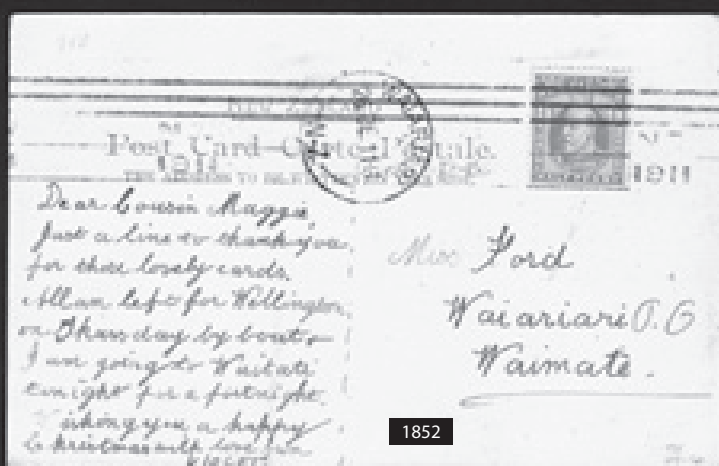 New Zealand
Post Card—Carte Postale.
1911
1911
Dear Cousin Maggie,
Just a line to thank you
for those lovely cards.
Allan left for Wellington
on Thursday by boat.
I am going to Waitati
tonight for a fortnight.
wishing you a happy
Christmas with love from
Miss Ford
Waiariari P.O
Waimate.
1852